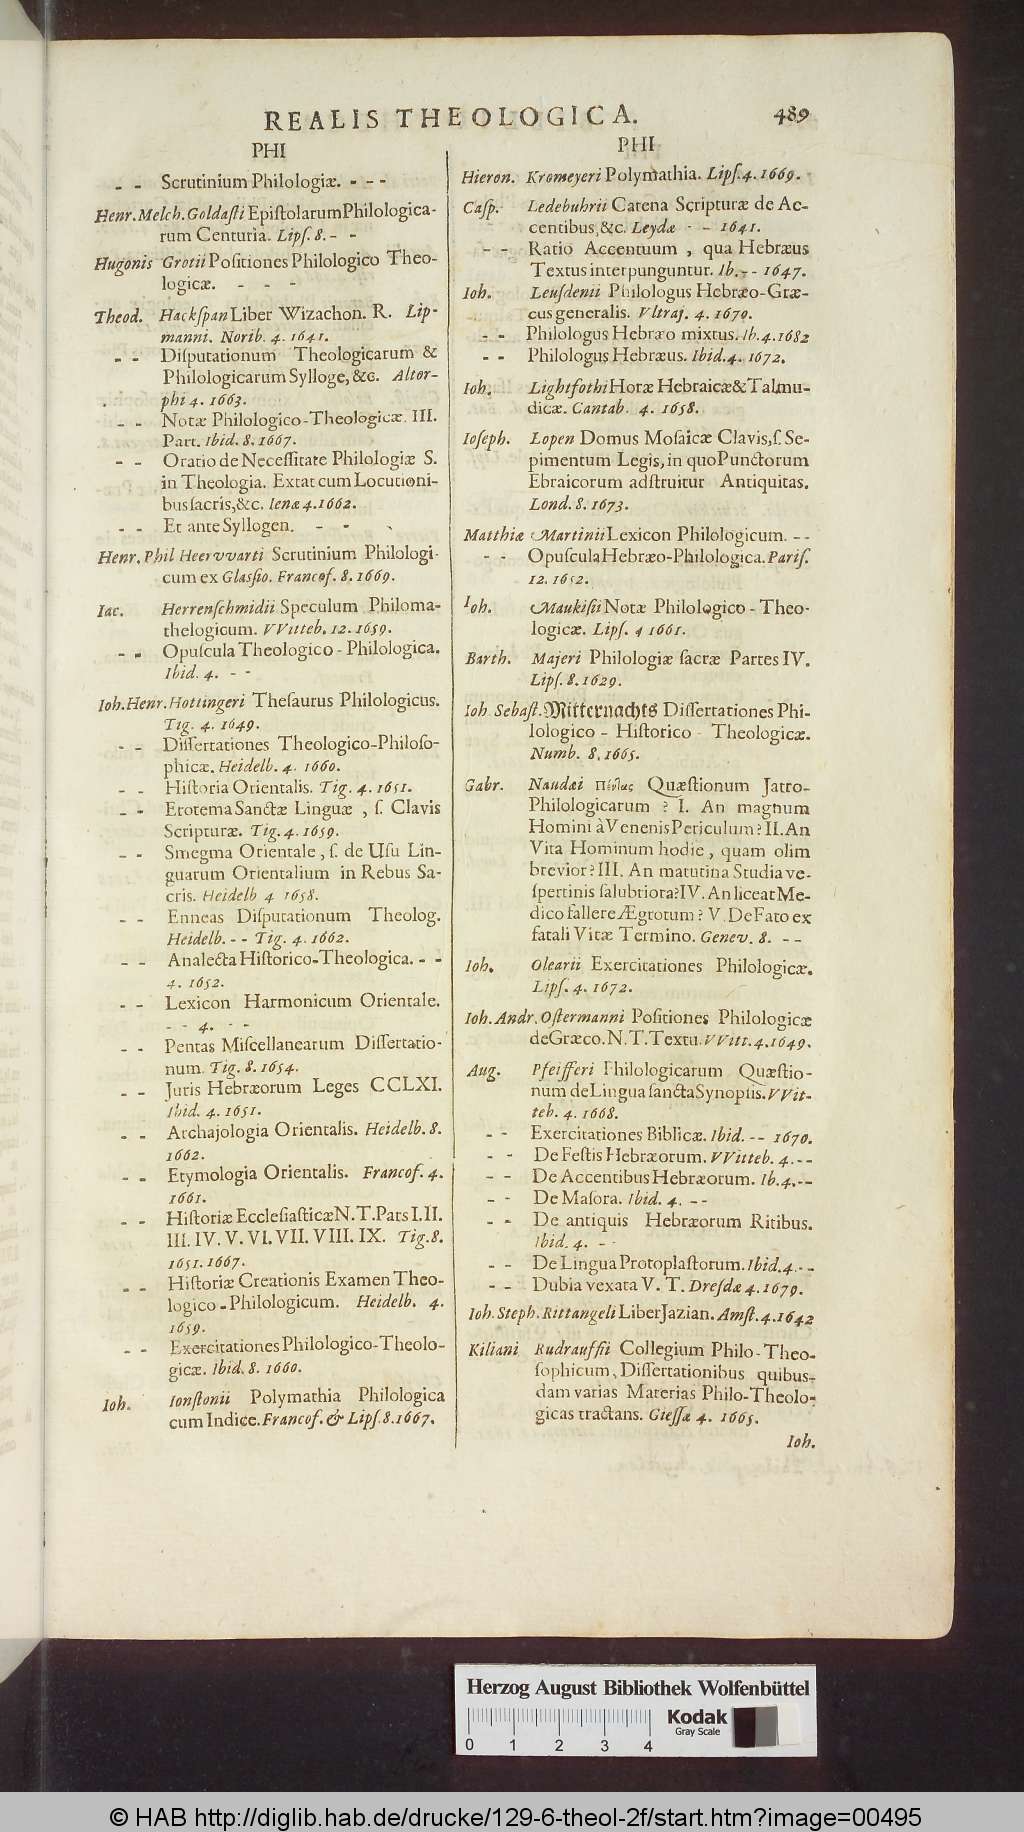 REALIS THEOLOGICA. 489
PHI
- - Scrutinium Philologiæ. - - -
Henr. Melch. Goldaſti Epiſtolarum Philologica-
rum Centuria. Lipſ. 8. - -
Hugonis Grotii Poſitiones Philologico Theo-
logicæ. - - -
Theod. Hackſpan Liber Wizachon. R. Lip-
manni. Norib. 4. 1641.
- - Diſputationum Theologicarum &
Philologicarum Sylloge, &c. Altor-
phi 4. 1663.
- - Notæ Philologico-Theologicæ. III.
Part. Ibid. 8. 1667.
- - Oratio de Neceſſitate Philologiæ S.
in Theologia. Extat cum Locutioni-
bus ſacris, &c. Ienæ 4. 1662.
- - Et ante Syllogen. - -
Henr. Phil Heervvarti Scrutinium Philologi-
cum ex Glaſſio. Francof. 8. 1669.
Iac. Herrenſchmidii Speculum Philoma-
thelogicum. VVitteb. 12. 1659.
- - Opuſcula Theologico-Philologica.
Ibid. 4. - -
Ioh. Henr. Hottingeri Theſaurus Philologicus.
Tig. 4. 1649.
- - Diſſertationes Theologico-Philoſo-
phicæ. Heidelb. 4. 1660.
- - Hiſtoria Orientalis. Tig. 4. 1651.
- - Erotema Sanctæ Linguæ, ſ. Clavis
Scripturæ. Tig. 4. 1659.
- - Smegma Orientale, ſ. de Uſu Lin-
guarum Orientalium in Rebus Sa-
cris. Heidelb 4 1658.
- - Enneas Diſputationum Theolog.
Heidelb. - - Tig. 4. 1662.
- - Analecta Hiſtorico-Theologica. - -
4. 1652.
- - Lexicon Harmonicum Orientale.
- - 4. - -
- - Pentas Miſcellanearum Diſſertatio-
num. Tig. 8. 1654.
- - Juris Hebræorum Leges CCLXI.
Ibid. 4. 1651.
- - Archajologia Orientalis. Heidelb. 8.
1662.
- - Etymologia Orientalis. Francof. 4.
1661.
- - Hiſtoriæ Eccleſiaſticæ N. T. Pars I. II.
III. IV. V. VI. VII. VIII. IX. Tig. 8.
1651. 1667.
- - Hiſtoriæ Creationis Examen Theo-
logico-Philologicum. Heidelb. 4.
1659.
- - Exercitationes Philologico-Theolo-
gicæ. Ibid. 8. 1660.
Ioh. Ionſtonii Polymathia Philologica
cum Indice. Francof. & Lipſ. 8. 1667.
PHI
Hieron. Kromeyeri Polymathia. Lipſ. 4. 1669.
Caſp. Ledebuhrii Catena Scripturæ de Ac-
centibus, &c. Leydæ - - 1641.
- - Ratio Accentuum, qua Hebræus
Textus interpunguntur. Ib. - - 1647.
Ioh. Leuſdenii Philologus Hebræo-Græ-
cus generalis. Vltraj. 4. 1670.
- - Philologus Hebræo mixtus. Ib. 4. 1682
- - Philologus Hebræus. Ibid. 4. 1672.
Ioh. Lightfothi Horæ Hebraicæ & Talmu-
dicæ. Cantab. 4. 1658.
Ioſeph. Lopen Domus Moſaicæ Clavis, ſ. Se-
pimentum Legis, in quo Punctorum
Ebraicorum adſtruitur Antiquitas.
Lond. 8. 1673.
Matthiæ Martinii Lexicon Philologicum. - -
- - Opuſcula Hebræo-Philologica. Pariſ.
12. 1652.
Ioh. Maukiſii Notæ Philologico-Theo-
logicæ. Lipſ. 4 1661.
Barth. Majeri Philologiæ ſacræ Partes IV.
Lipſ. 8. 1629.
Ioh Sebaſt. Mitternachts Diſſertationes Phi-
lologico - Hiſtorico - Theologicæ.
Numb. 8. 1665.
Gabr. Naudæi Quæſtionum Jatro-
Philologicarum ? I. An magnum
Homini à Venenis Periculum? II. An
Vita Hominum hodie, quam olim
brevior? III. An matutina Studia ve-
ſpertinis ſalubriora? IV. An liceat Me-
dico fallere Ægrotum? V. De Fato ex
fatali Vitæ Termino. Genev. 8. - -
Ioh. Olearii Exercitationes Philologicæ.
Lipſ. 4. 1672.
Ioh. Andr. Oſtermanni Poſitiones Philologicæ
de Græco. N. T. Textu. VVitt. 4. 1649.
Aug. Pfeifferi Philologicarum Quæſtio-
num de Lingua ſancta Synopſis. VVit-
teb. 4. 1668.
- - Exercitationes Biblicæ. Ibid. - - 1670.
- - De Feſtis Hebræorum. VVitteb. 4. - -
- - De Accentibus Hebræorum. Ib. 4. - -
- - De Maſora. Ibid. 4. - -
- - De antiquis Hebræorum Ritibus.
Ibid. 4. - -
- - De Lingua Protoplaſtorum. Ibid. 4. - -
- - Dubia vexata V. T. Dreſdæ 4. 1679.
Ioh. Steph. Rittangeli Liber Jazian. Amſt. 4. 1642
Kiliani Rudrauffii Collegium Philo-Theo-
ſophicum, Diſſertationibus quibus-
dam varias Materias Philo-Theolo-
gicas tractans. Gieſſæ 4. 1665.
Ioh.
Herzog August Bibliothek Wolfenbüttel
0 1 2 3 4
Kodak
Gray Scale
© HAB http://diglib.hab.de/drucke/129-6-theol-2f/start.htm?image=00495